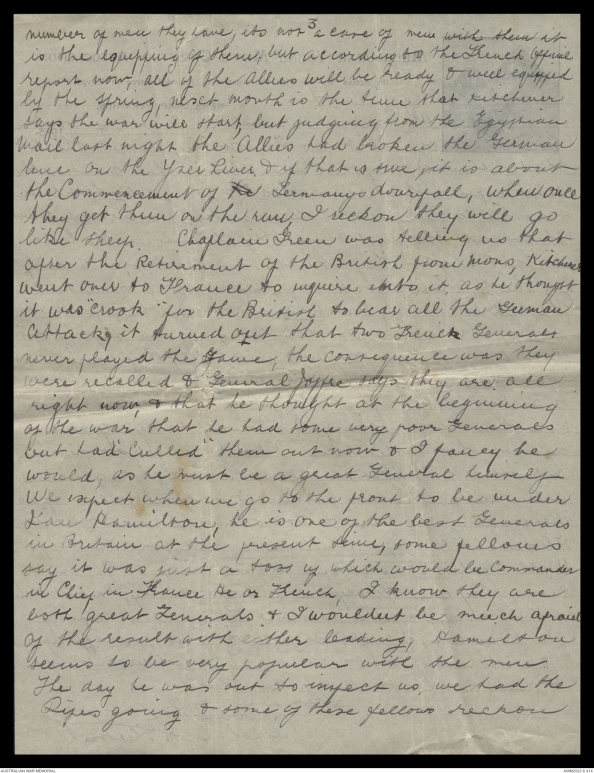 3
number of men they have, its not a case of men with them at
is the equipping of them, but according to the French Official
report now, all of the Allies will be ready & well equipped
by the spring, next month is the time that Kitchener
says the war will start but judging from the Egyptian
Mail last night the Allies had broken the German
line on the Yser River, & if that is true, it is about
the Commencement of the Germanys downfall, when once
they get them on the run, I reckon they will go
like sheep. Chaplain Green was telling us that
after the Retirement of the British from Mons, Kitchener
went over to France to inquire into it, as he thought
it was "crook" for the British to bear all the German
Attack, it turned out that two French Generals
never played the Game, the consequence was they
were recalled & General Joffre says they are all
right now, & that he thought at the beginning
of the war that he had some very poor Generals
but had "Culled" them out now & I fancy he
would, as he must be a great General himself
We expect when we go to the front to be under
Ian Hamilton, he is one of the best Generals
in Britain at the present time, some fellows
say it was just a toss up which would be Commander
in Chief in France He or French, I know they are
both great Generals & I wouldent be much afraid
of the result with either leading, Hamilton
seems to be very popular with the men.
The day he was out to inspect us, we had the
Pipes going & some of these fellows reckon
AUSTRALIAN WAR MEMORIAL
AWM2022.6.474